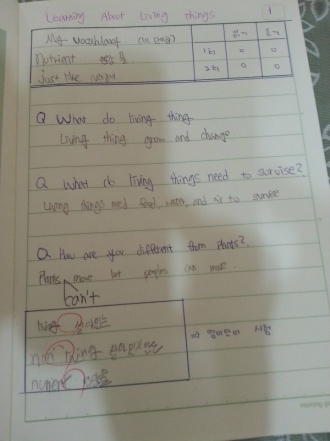 Learning About Living things 1
My vocabulary 읽기 쓰기
Nutrient 영양분 1회 0 0
Just like 2회 0 0
Q What do living thing
Living thing grow and change
Q What do living things need to survise?
Living things need food, water, and air to survise
Q How are you different from Plants?
Plants move but peoples can move.
can't
living 살아있는
non living 살아있지않은
nutrient 영양분
⇒ 영어단어 시험